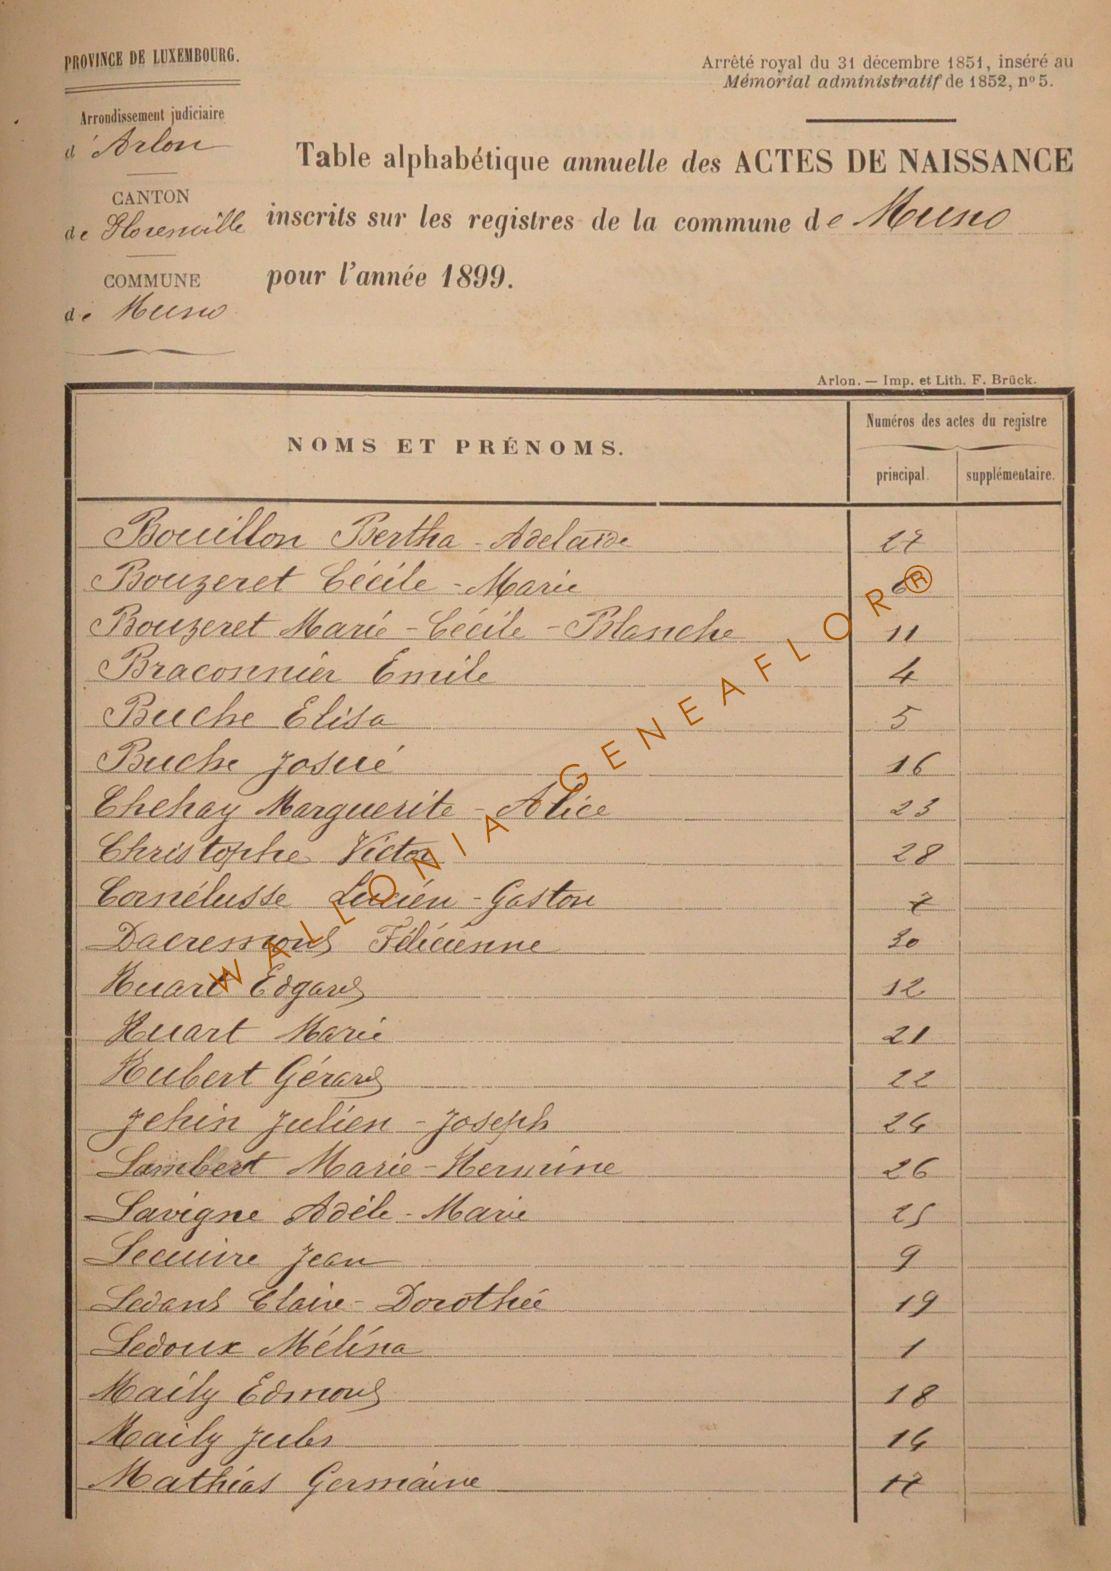 PROVINCE DE LUXEMBOURG.
Arrondissement judiciaire
d'Arlon
CANTON
de Florenville
COMMUNE
de Muno
Arrêté royal du 31 décembre 1851, inséré au
Mémorial administratif de 1852, nº 5.
Table alphabétique annuelle des ACTES DE NAISSANCE
inscrits sur les registres de la commune de Muno
pour l'année 1899.
Arlon. — Imp. et Lith. F. Brück.
NOMS ET PRÉNOMS.
Numéros des actes du registre
principal.
supplémentaire.
Bouillon Bertha - Adelaïde 27
Bouzeret Cécile - Marie 6
Bouzeret Marie - Cécile - Blanche 11
Braconnier Emile 4
Buche Elisa 5
Buche Josué 16
Chehay Marguerite - Alice 23
Christophe Victor 28
Cornélusse Lucien - Gaston 7
Dacremont Félicienne 30
Huart Edgard 12
Huart Marie 21
Hubert Gérard 22
Jehin Julien - Joseph 24
Lambert Marie - Hermine 26
Lavigne Adèle - Marie 25
Lecuivre Jean 9
Ledant Claire - Dorothée 19
Ledoux Mélina 1
Maily Edmond 18
Maily Jules 14
Mathias Germaine 17
WALLONIA GENEAFLOR®